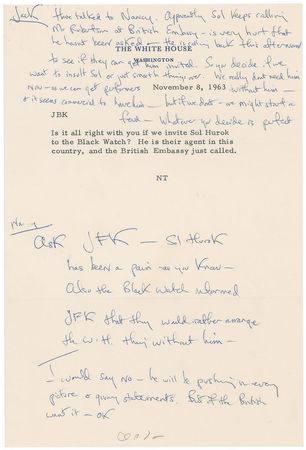 Jack
I have talked to Nancy. Apparently Sol keeps calling
Mr Robertson at British Embassy - is very hurt that
he hasnt been asked - He is calling back this afternoon
THE WHITE HOUSE
to see if they can get him invited. So you decide if we
WASHINGTON
want to insult Sol or just smooth things over. We really dont need him
now - as we can get performers without him -
November 8, 1963
+ it seems commercial to have him - but if we dont - we might start a
feud - Whatever you decide is perfect
JBK
Is it all right with you if we invite Sol Hurok
to the Black Watch? He is their agent in this
country, and the British Embassy just called.
NT
Nancy
Ask JFK - Sol Hurok
has been a pain - as you know -
Also the Black Watch informed
JFK that they would rather arrange
the W.H. thing without him -
I would say no - he will be pushing in every
picture or giving statements. But if the British
want it - OK